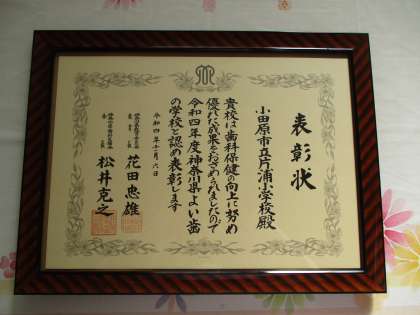 表彰状
小田原市立片浦小学校殿
貴校は歯科保健の向上に努め
優れた成果をおさめられましたので
令和四年度神奈川県よい歯
の学校と認め表彰します
令和四年十二月六日
花田忠雄
松井克之